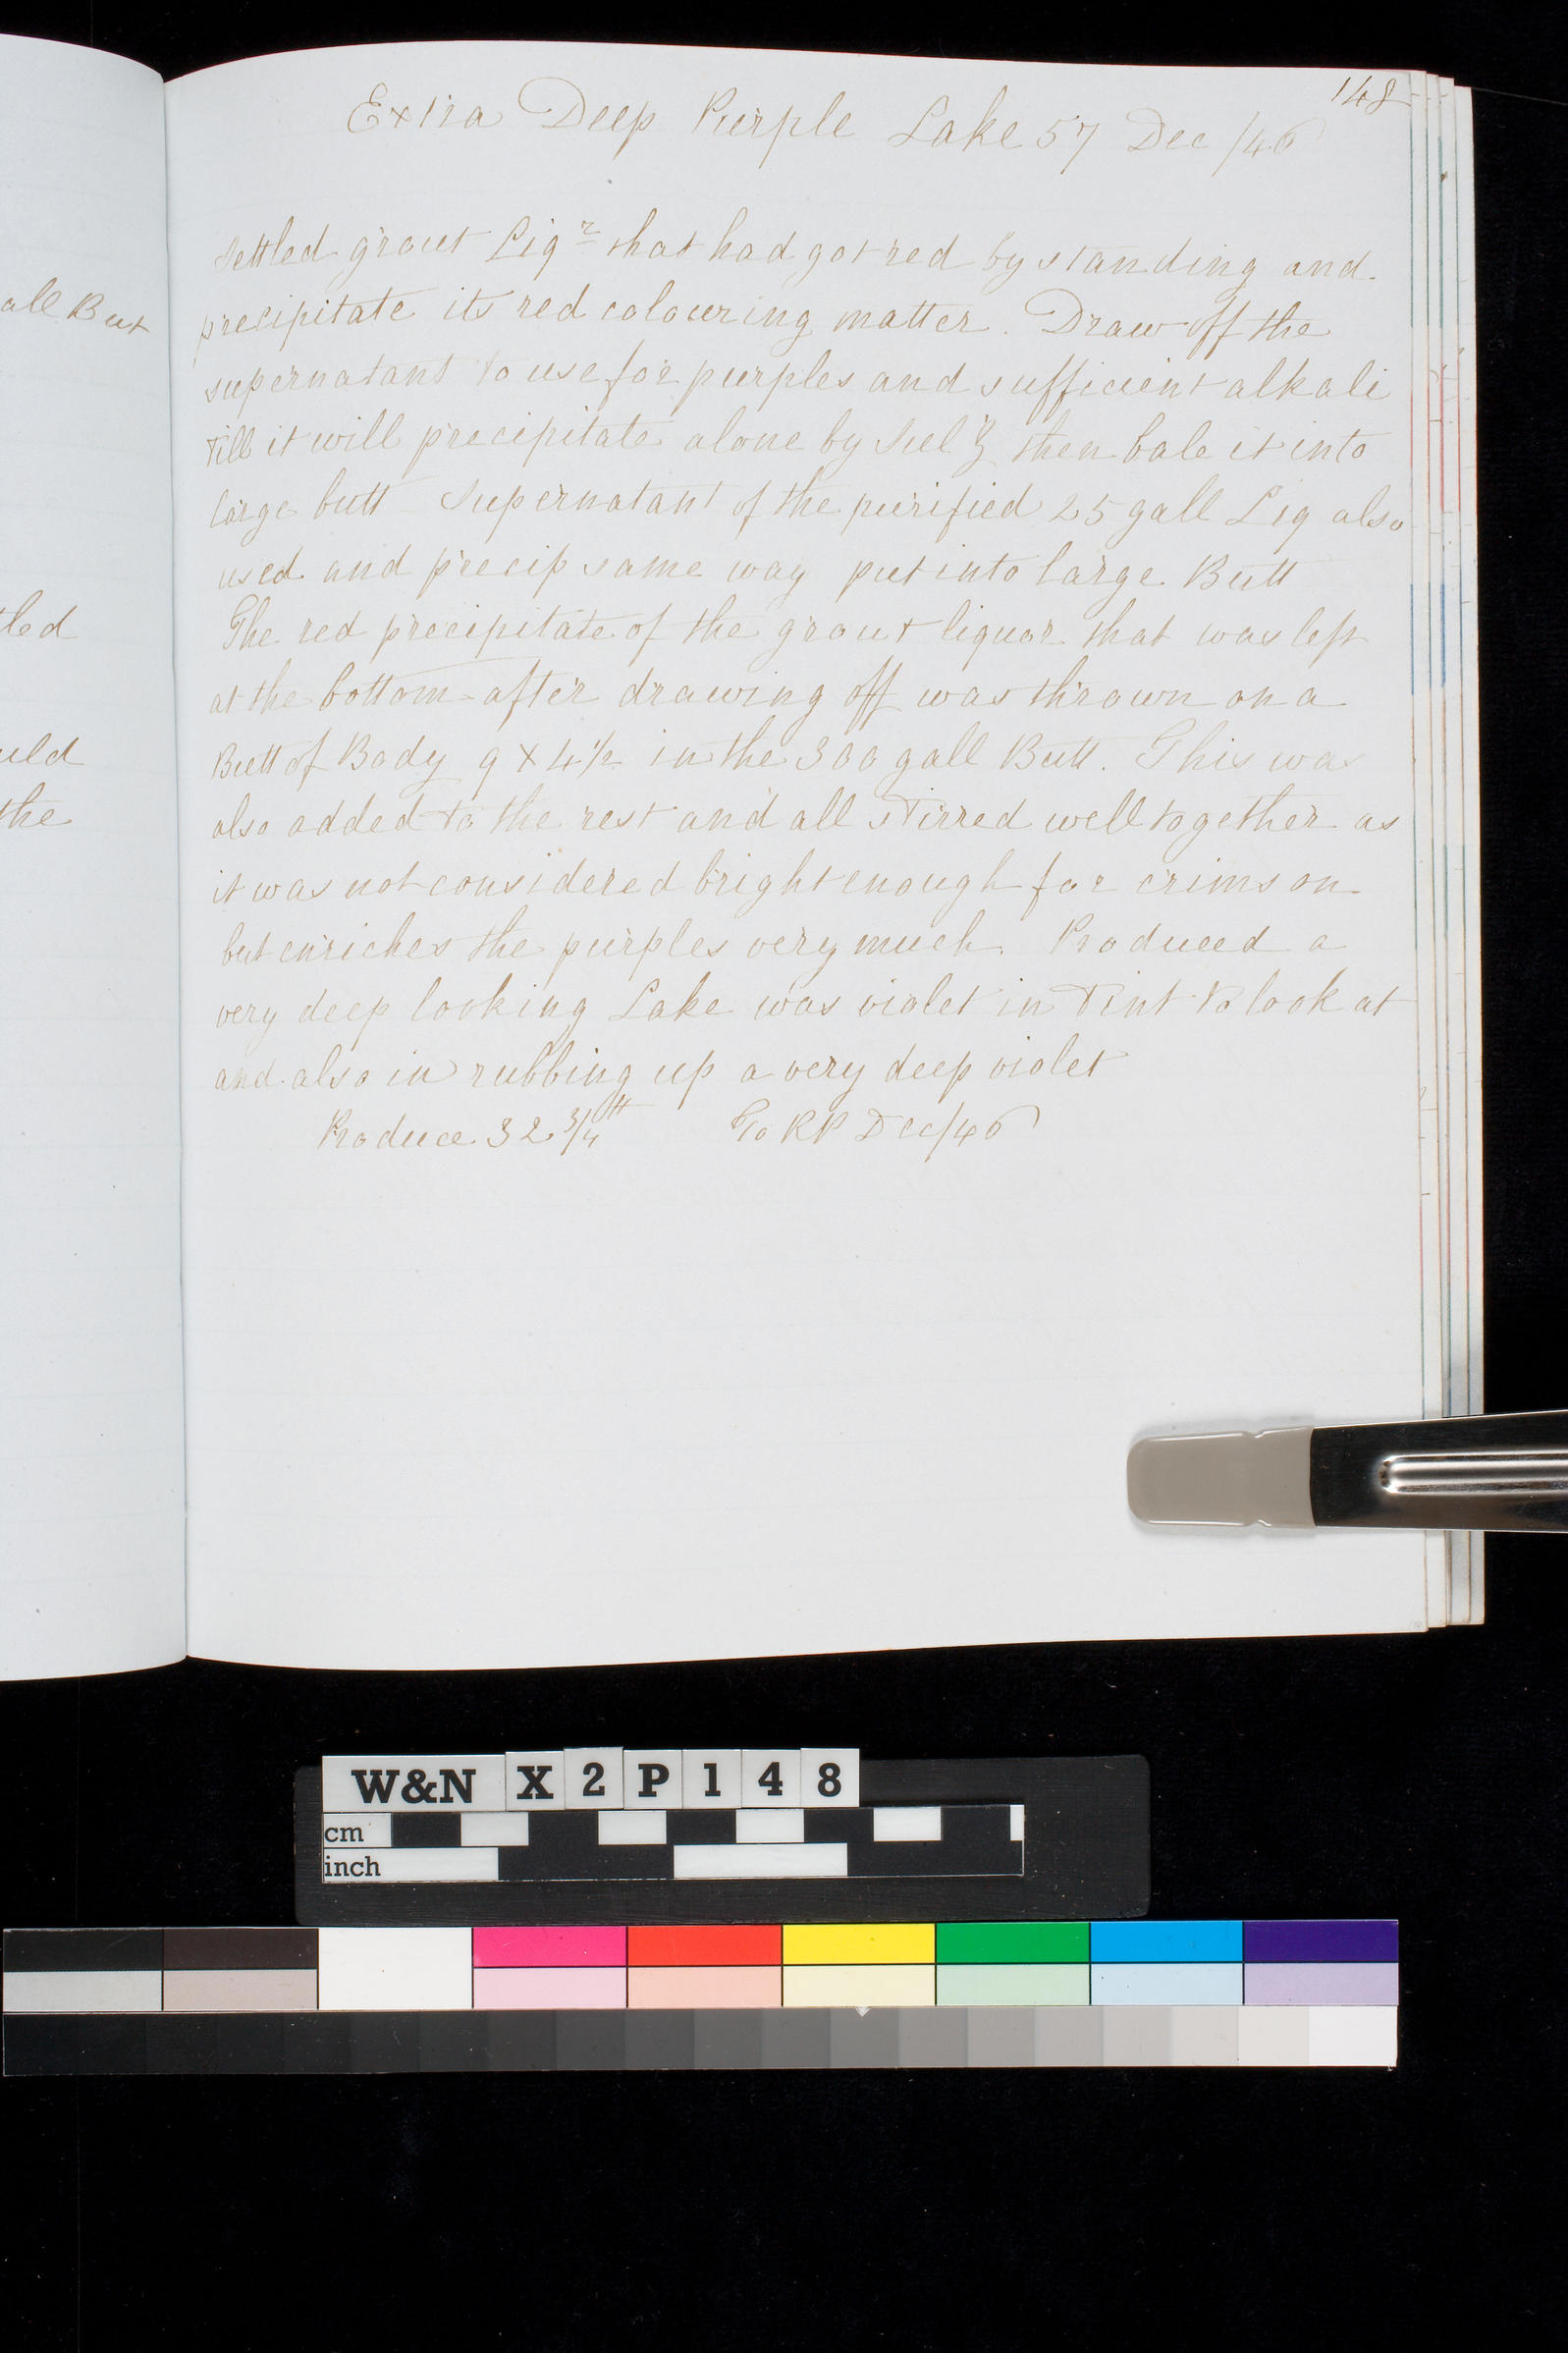 148
Extra Deep Purple Lake 57 Dec /46
Settled grout Liqr that had got red by standing and
precipitate its red colouring matter. Draw off the
supernatant to use for purples and sufficient alkali
till it will precipitate alone by Sul Z then bale it into
large butt Supernatant of the purified 25 gall Liq also
used and precip same way put into large Butt
The red precipitate of the grout liquor that was left
at the bottom after drawing off was thrown on a
Butt of Body 9 x 4½ in the 300 gall Butt. This was
also added to the rest and all stirred well together as
it was not considered bright enough for crimson
but enriches the purples very much. Produced a
very deep looking Lake was violet in tint to look at
and also in rubbing up a very deep violet
Produce 32 3/4 lb To RP Dec/46
all But
tled
uld
the
W&N X2P148
cm
inch